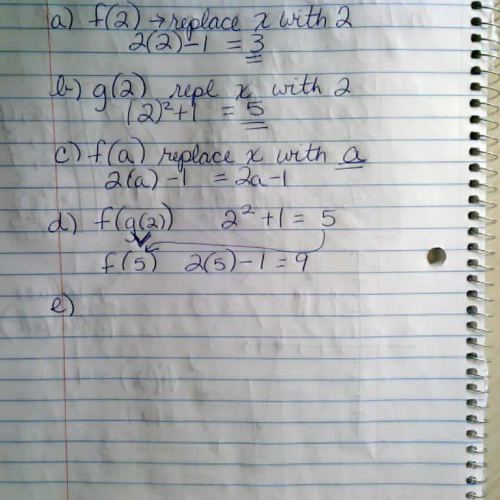 a) f(2) → replace x with 2
2(2)-1 = 3
b) g(2) repl x with 2
(2)²+1 = 5
c) f(a) replace x with a
2(a)-1 = 2a-1
d) f(g(2)) 2²+1 = 5
f(5) 2(5)-1 = 9
e)